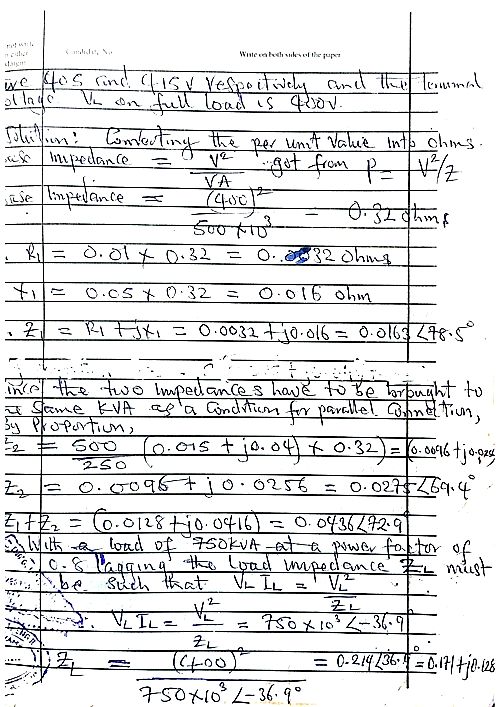 not write
n either
margin
Candidate No.
Write on both sides of the paper
we 405 and 415V respectively and the terminal
oltage VL on full load is 400V.
Solution: Converting the per unit value into ohms.
ase impedance = V²/VA got from P = V²/Z
ase Impedance = (400)²/500 × 10³ = 0.32 ohms
. R1 = 0.01 × 0.32 = 0.0032 ohms
X1 = 0.05 × 0.32 = 0.016 ohm
. Z1 = R1 + jX1 = 0.0032 + j0.016 = 0.0163 ∠78.5°
ince the two impedances have to be brought to
Same KVA as a Condition for parallel Connection,
By Proportion,
Z2 = 500/250 (0.015 + j0.04) × 0.32) = (0.0096 + j0.025
Z2 = 0.0096 + j 0.0256 = 0.0275 ∠69.4°
Z1 + Z2 = (0.0128 + j0.0416) = 0.0436 ∠72.9°
With a load of 750KVA at a power factor of
0.8 lagging the Load impedance ZL must
be such that VL IL = VL²/ZL
. VL IL = VL²/ZL = 750 × 10³ ∠-36.9°
ZL = (400)²/750×10³ ∠-36.9° = 0.214∠36.9° = 0.171+j0.128